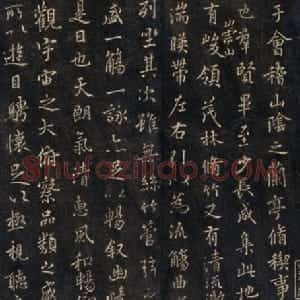 于會稽山陰之蘭亭脩稧事
也羣賢畢至少長咸集此地
崇山
有峻領茂林脩竹又有清流
湍暎帶左右引以為流觴曲
列坐其次雖無絲竹管弦
盛一觴一詠亦足以暢叙幽情
是日也天朗氣清惠風和暢
觀宇宙之大俯察品類之盛
所以遊目騁懷足以極視聽
Shufaziliao.com